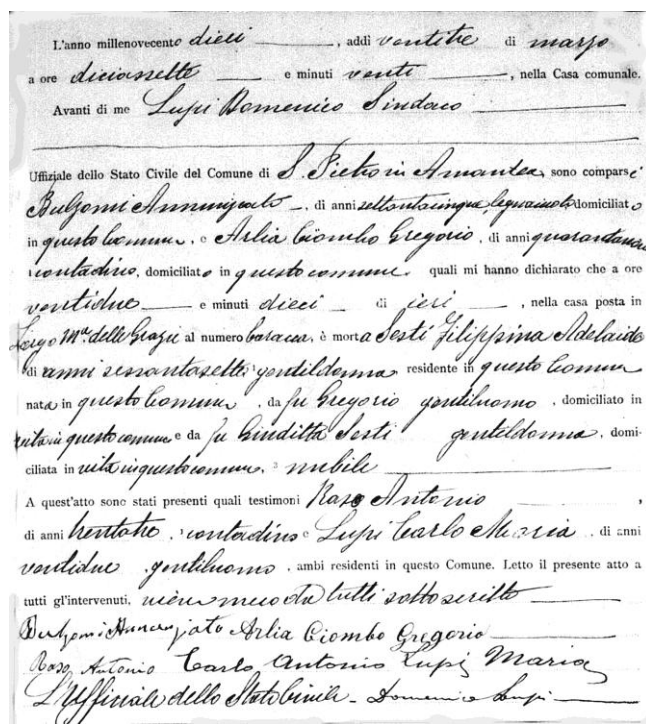 L'anno millenovecento dieci, addi ventitre di marzo
a ore diciassette e minuti venti, nella Casa comunale.
Avanti di me Lupi Domenico Sindaco
Uffiziale dello Stato Civile del Comune di S. Pietro in Amantea, sono comparsi
Bulzomi Annunziato, di anni settantacinque, legnaiuolo, domiciliato
in questo Comune, e Arlia Ciombo Gregorio, di anni
contadino, domiciliato in questo comune, quali mi hanno dichiarato che a ore
ventidue e minuti dieci di ieri, nella casa posta in
Largo Ma. delle Grazie al numero baracca, è morta Sesti Filippina Adelaide
di anni sessantasette, gentildonna residente in questo Comune
nata in questo Comune, da fu Gregorio gentiluomo, domiciliato in
vita in questo comune e da fu Giuditta Sesti gentildonna, domi-
ciliata in vita in questo comune, nubile
A quest'atto sono stati presenti quali testimoni Raso Antonio,
di anni trentatre, contadino e Lupi Carlo Maria, di anni
ventidue, gentiluomo, ambi residenti in questo Comune. Letto il presente atto a
tutti gl'intervenuti, viene meco da tutti sottoscritto
Bulzomi Annunziato Arlia Ciombo Gregorio
Raso Antonio Carlo Antonio Lupi Maria
L'Ufficiale dello Stato Civile - Domenico Lupi